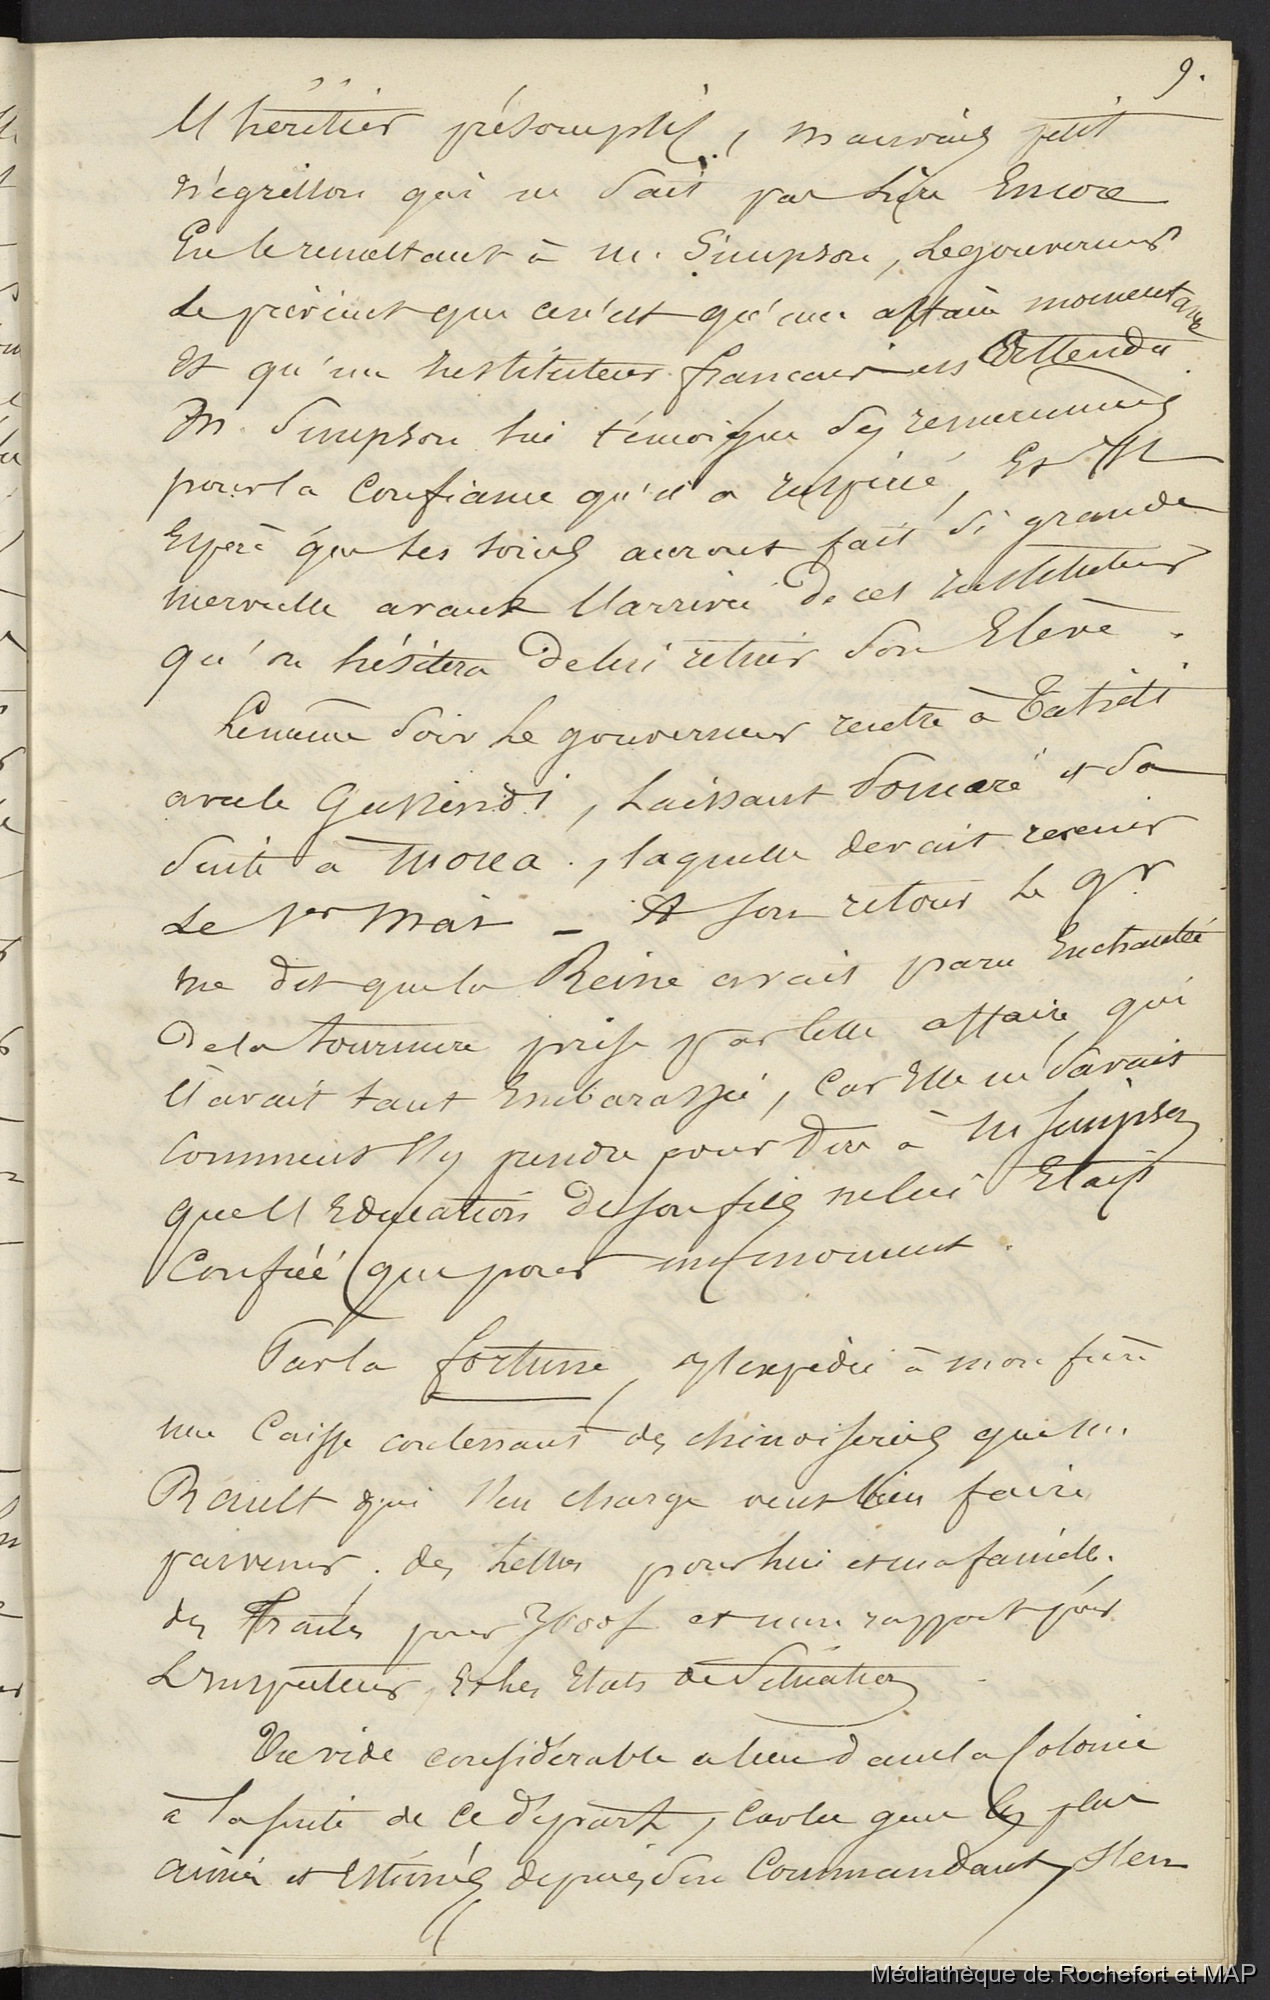 9.
l'héritier présomptif, mauvais petit
négrillon qui ne sait pas lire encore
En le remettant à M. Simpson, le gouverneur
le prévient que ce n'est qu'une affaire momentanée
et qu'un instituteur français est attendu
M. Simpson lui témoigne des remerciements
pour la confiance qu'il a inspiré, et il
espère que ses soins auront fait si grande
merveille avant l'arrivée de cet instituteur
qu'on hésitera de lui retirer son Elève.
Le même soir le gouverneur rentre à Tahiti
avec le Gassendi, laissant Pomaré et sa
suite à Moréa, laquelle devait revenir
le 1er Mai – A son retour le gr
me dit que la Reine avait paru Enchantée
de la tournure prise par cette affaire, qui
l'avait tant Embarassée, car Elle ne savait
comment s'y prendre pour dire à M Simpson
que l'Education de son fils ne lui Etait
Confiée que pour un moment.
Par la fortune, j'expédie à mon frère
une Caisse contenant des chinoiseries que M.
Rault qui s'en charge veut bien faire
parvenir, des lettres pour lui et ma famille.
des Traites pour et un rapport pour
L'Inspecteur, et les Etats de Situation
Un vide considérable a lieu dans la Colonie
à la suite de ce départ, car les gens les plus
aimés et Estimés depuis son Commandant, s'en